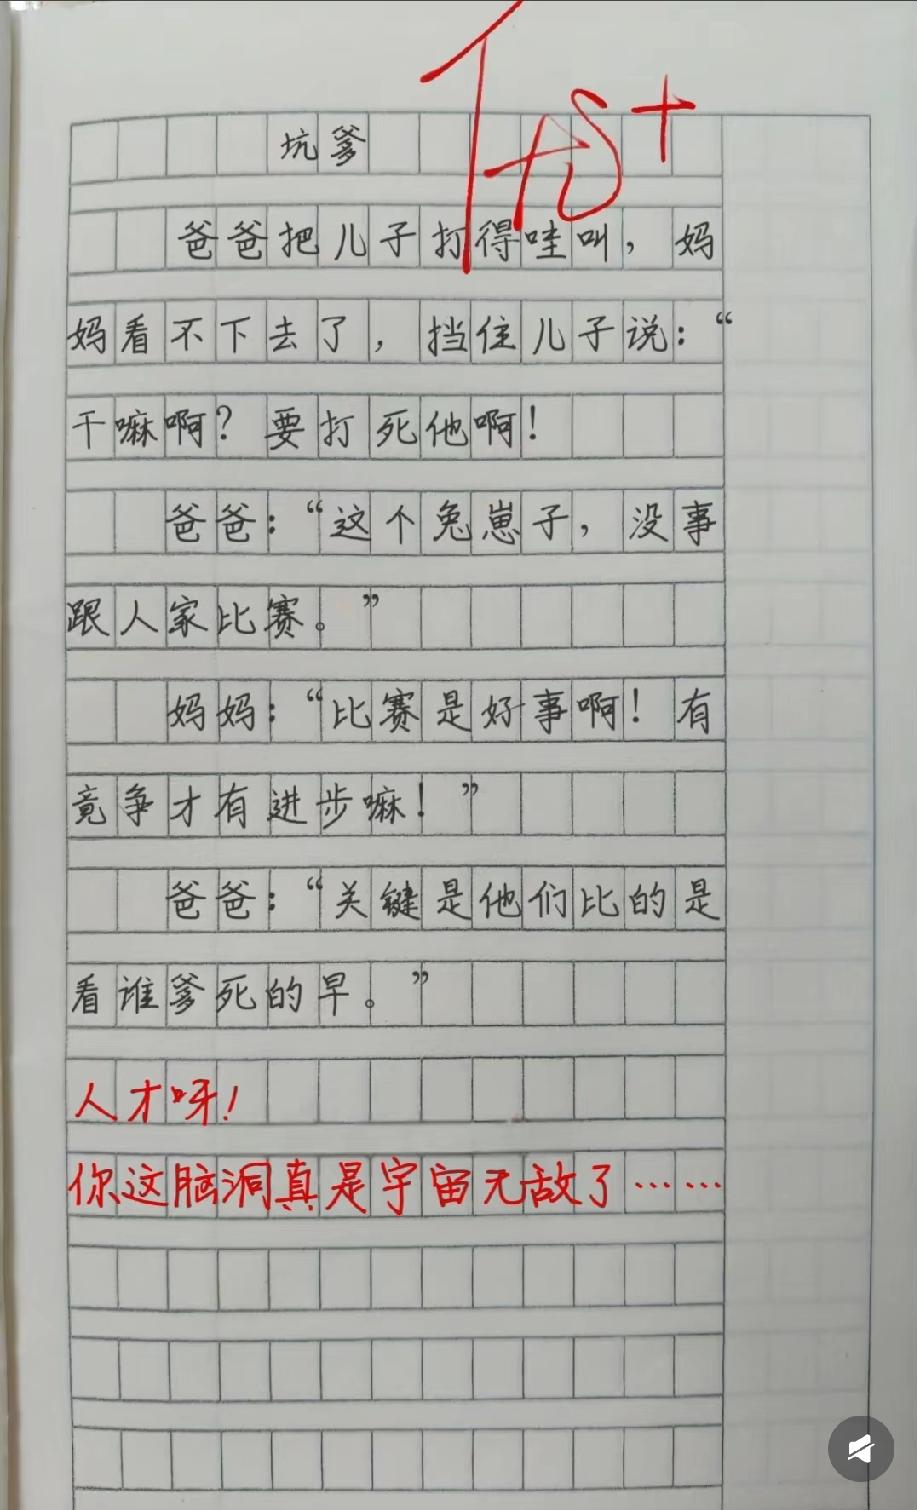 坑爹
爸爸把儿子打得哇叫，妈
妈看不下去了，挡住儿子说：“
干嘛啊？要打死他啊！
爸爸：“这个兔崽子，没事
跟人家比赛。”
妈妈：“比赛是好事啊！有
竟争才有进步嘛！”
爸爸：“关键是他们比的是
看谁爹死的早。”
人才呀！
你这脑洞真是宇宙无敌了……